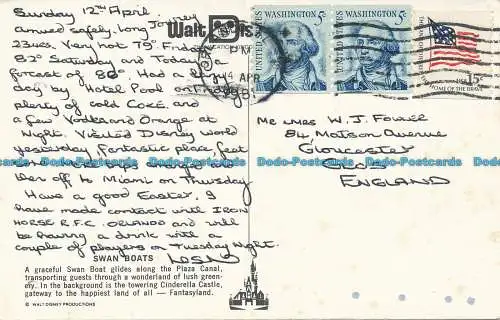 Sunday 12th April
arrived safely. Long Journey
23hrs. Very hot 79° Friday
82° Saturday and Today a
forcast of 86°. Had a lazy
day by Hotel Pool on Friday
plenty of cold Coke and
a few Vodka and Orange at
Night. Visited Disney World
yesterday fantastic place, feet
off to Miami on Thursday
Have a good Easter. I
have made contact with IRON
HORSE R.F.C. ORLANDO and will
be having a drink with a
couple of players on Tuesday Night.
SWAN BOATS
A graceful Swan Boat glides along the Plaza Canal,
transporting guests through a wonderland of lush green-
ery. In the background is the towering Cinderella Castle,
gateway to the happiest land of all — Fantasyland.
© WALT DISNEY PRODUCTIONS
Walt Dis
PM
14 APR
UNITED STATES
WASHINGTON 5c
UNITED STATES
WASHINGTON 5c
USA 15c
HOME OF THE BRAVE
Mr & Mrs W. J. Fowler
84 Matson Avenue
Gloucester
GLOS
ENGLAND
Dodo-Postcards Dodo-Postcards Dodo-Postcards Dodo-Postcards Dodo-Postcards